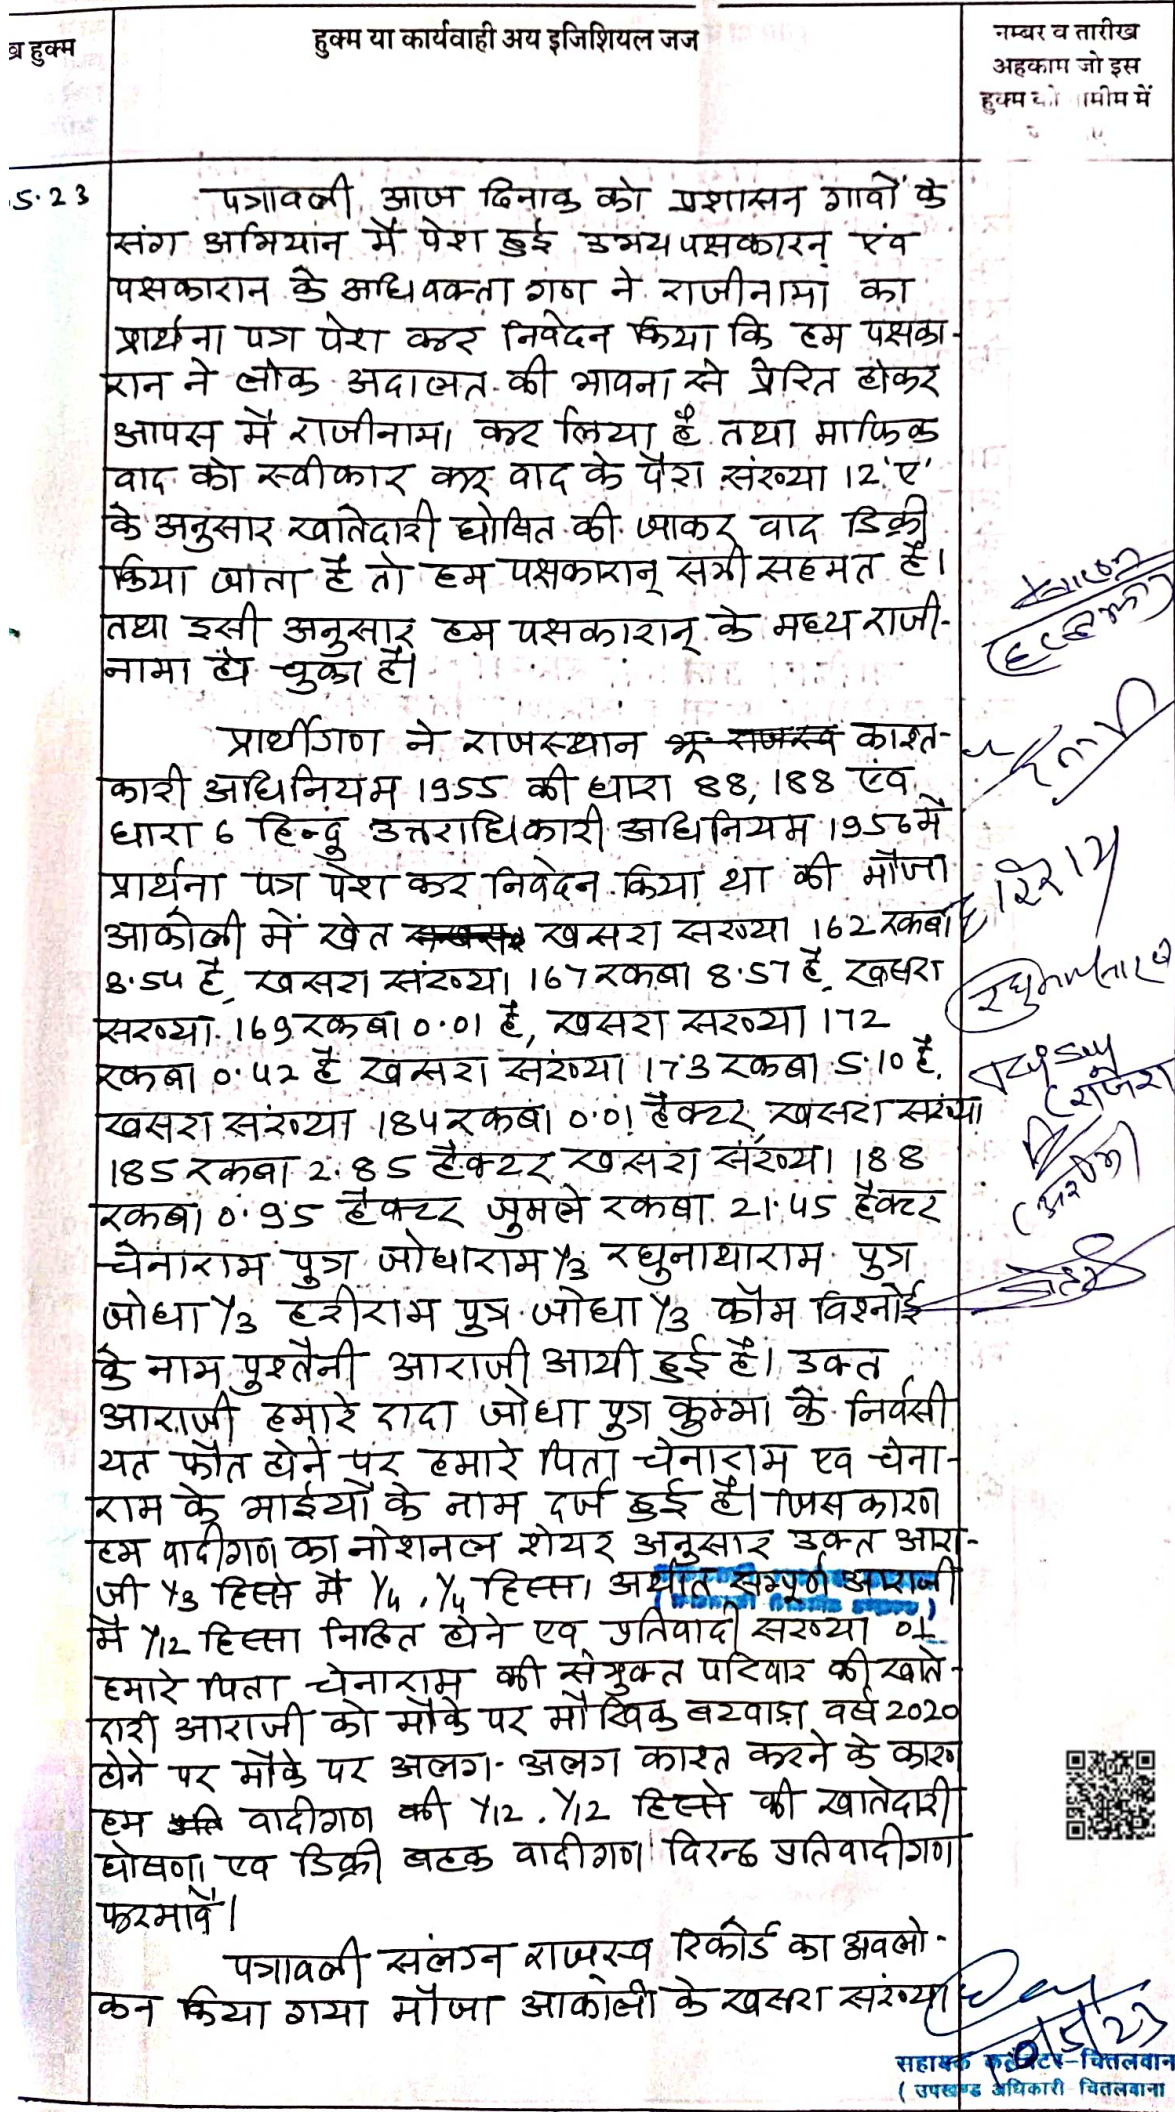 व हुक्म
हुक्म या कार्यवाही अय इजिशियल जज
नम्बर व तारीख
अहकाम जो इस
हुक्म को तामीम में
5.23
पत्रावली आज दिनाक को प्रशासन गावों के
संग अभियान में पेश हुई उभयपक्षकारान् एंव
पक्षकारान के अधिवक्ता गण ने राजीनामा का
प्रार्थना पत्र पेश कर निवेदन किया कि हम पक्षका-
रान ने लोक अदालत की भावना से प्रेरित होकर
आपस में राजीनामा कर लिया है तथा माफिक
वाद को स्वीकार कर वाद के पैरा संख्या 12 'ए'
के अनुसार खातेदारी घोषित की जाकर वाद डिक्री
किया जाता है तो हम पक्षकारान् सभी सहमत है।
तथा इसी अनुसार हम पक्षकारान् के मध्य राजी-
नामा हो चुका है।
प्रार्थीगण ने राजस्थान भू राजस्व काश्त-
कारी अधिनियम 1955 की धारा 88, 188 एंव
धारा 6 हिन्दु उत्तराधिकारी अधिनियम 1956 में
प्रार्थना पत्र पेश कर निवेदन किया था की मौजा
आकोली में खेत खसरा सरख्या 162 रकबा
8.54 है, खसरा संख्या 167 रकबा 8.57 है, खसरा
सरख्या 169 रकबा 0.01 है, खसरा सरख्या 172
रकबा 0.42 है खसरा संख्या 173 रकबा 5.10 है,
खसरा संख्या 184 रकबा 0.01 हैक्टर, खसरा संख्या
185 रकबा 2.85 हैक्टर खसरा संख्या 188
रकबा 0.95 हैक्टर जुमले रकबा 21.45 हैक्टर
चेनाराम पुत्र जोधाराम 1/3 रघुनाथाराम पुत्र
जोधा 1/3 हरीराम पुत्र जोधा 1/3 कौम विश्नोई
के नाम पुश्तैनी आराजी आयी हुई है। उक्त
आराजी हमारे दादा जोधा पुत्र कुम्भा के निर्वसी
यत फौत होने पर हमारे पिता चेनाराम एव चेना-
राम के भाईयो के नाम दर्ज हुई है। जिस कारण
हम वादीगण का नोशनल शेयर अनुसार उक्त आरा-
जी 1/3 हिस्से में 1/4, 1/4 हिस्सा अर्थात सम्पूर्ण आराजी
में 1/12 हिस्सा निहित होने एव प्रतिवादी सरख्या 01
हमारे पिता चेनाराम की संयुक्त परिवार की खाते-
दारी आराजी को मौके पर मौखिक बटवाड़ा वर्ष 2020
होने पर मौके पर अलग-अलग काश्त करने के कारण
हम प्रति वादीगण की 1/12, 1/12 हिस्से की खातेदारी
घोषणा एव डिक्री बहक वादीगण विरुद्ध प्रतिवादीगण
फरमावें।
पत्रावली संलग्न राजस्व रिकोर्ड का अवलो-
कन किया गया मौजा आकोली के खसरा संख्या
हरिराम
(राजेश
सहायक कलेक्टर-चितलवान
( उपखण्ड अधिकारी चितलवाना